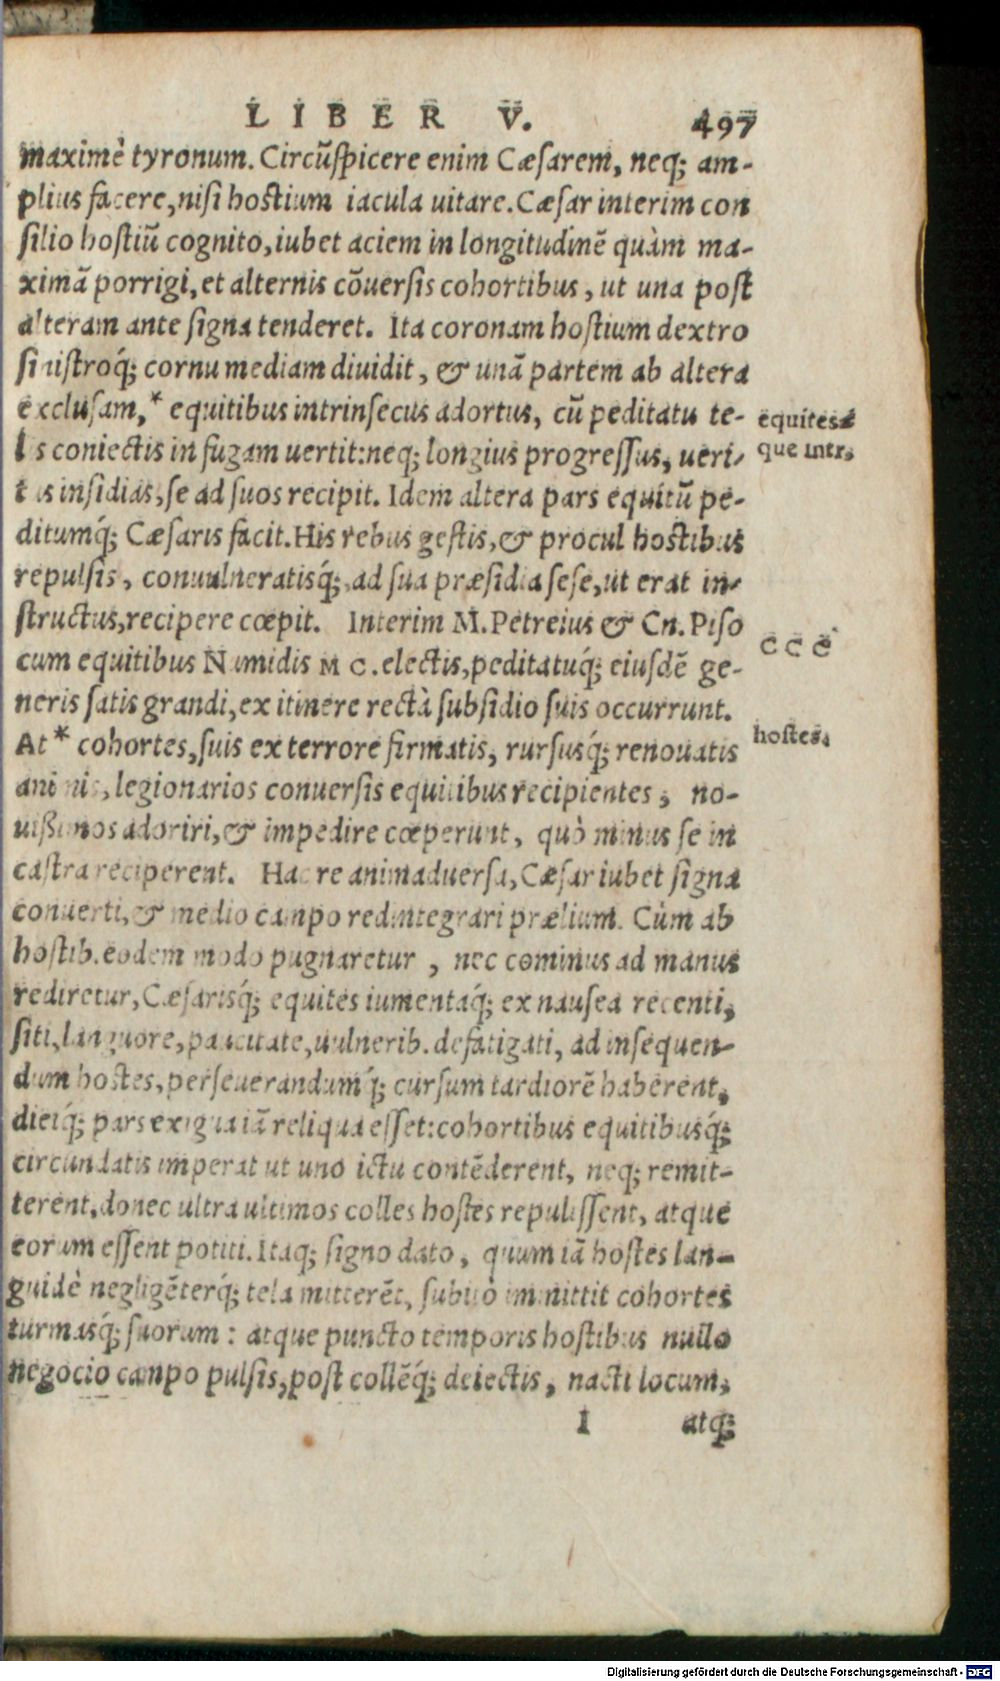 LIBER V. 497
maximè tyronum. Circũspicere enim Cæsarem, neq; am-
plius facere, nisi hostium iacula uitare. Cæsar interim con
silio hostiũ cognito, iubet aciem in longitudinẽ quàm ma-
ximã porrigi, et alternis cõuersis cohortibus, ut una post
alteram ante signa tenderet. Ita coronam hostium dextro
sinistroq́; cornu mediam diuidit, & unã partem ab altera
exclusam,* equitibus intrinsecus adortus, cũ peditatu te-
lis coniectis in fugam uertit: neq; longius progressus, ueri-
tus insidias, se ad suos recipit. Idem altera pars equitũ pe-
ditumq́; Cæsaris facit. His rebus gestis, & procul hostibus
repulsis, conuulneratisq́;, ad sua præsidia sese, ut erat in-
structus, recipere cœpit. Interim M. Petreius & Cn. Piso
cum equitibus Numidis M C. electis, peditatuq́; eiusdẽ ge-
neris satis grandi, ex itinere rectà subsidio suis occurrunt.
At* cohortes, suis ex terrore firmatis, rursusq́; renouatis
animis, legionarios conuersis equitibus recipientes, no-
uißimos adoriri, & impedire cœperunt, quò minus se in
castra reciperent. Hac re animaduersa, Cæsar iubet signa
conuerti, & medio campo redintegrari prælium. Cùm ab
hostib. eodem modo pugnaretur, nec cominus ad manus
rediretur, Cæsarisq́; equites iumentaq́; ex nausea recenti,
siti, languore, paucitate, uulnerib. defatigati, ad insequen-
dum hostes, perseuerandumq́; cursum tardiorẽ haberent,
dieiq́; pars exigua iã reliqua esset: cohortibus equitibusq́;
circundatis imperat ut uno ictu contẽderent, neq; remit-
terent, donec ultra ultimos colles hostes repulissent, atque
eorum essent potiti. Itaq; signo dato, quum iã hostes lan-
guidè negligẽterq́; tela mitterẽt, subitò immittit cohortes
turmasq́; suorum: atque puncto temporis hostibus nullo
negocio campo pulsis, post collẽq́; deiectis, nacti locum,
I atq;
equites
que intr.
C C C
hostes.
Digitalisierung gefördert durch die Deutsche Forschungsgemeinschaft - DFG